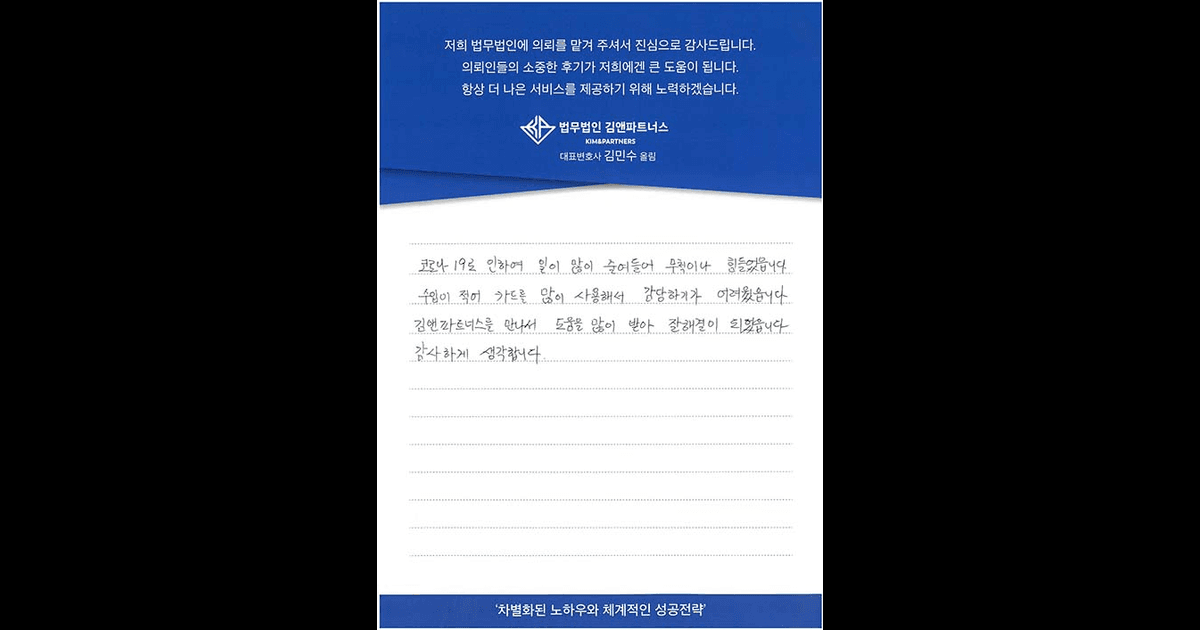 저희 법무법인에 의뢰를 맡겨 주셔서 진심으로 감사드립니다.
의뢰인들의 소중한 후기가 저희에겐 큰 도움이 됩니다.
항상 더 나은 서비스를 제공하기 위해 노력하겠습니다.
법무법인 김앤파트너스
KIM&PARTNERS
대표변호사 김민수 올림
코로나 19로 인하여 일이 많이 줄어들어 무척이나 힘들었읍니다
수입이 적어 카드를 많이 사용해서 감당하기가 어려웠읍니다
김앤파트너스를 만나서 도움을 많이 받아 잘해결이 되었읍니다
감사하게 생각합니다.
'차별화된 노하우와 체계적인 성공전략'